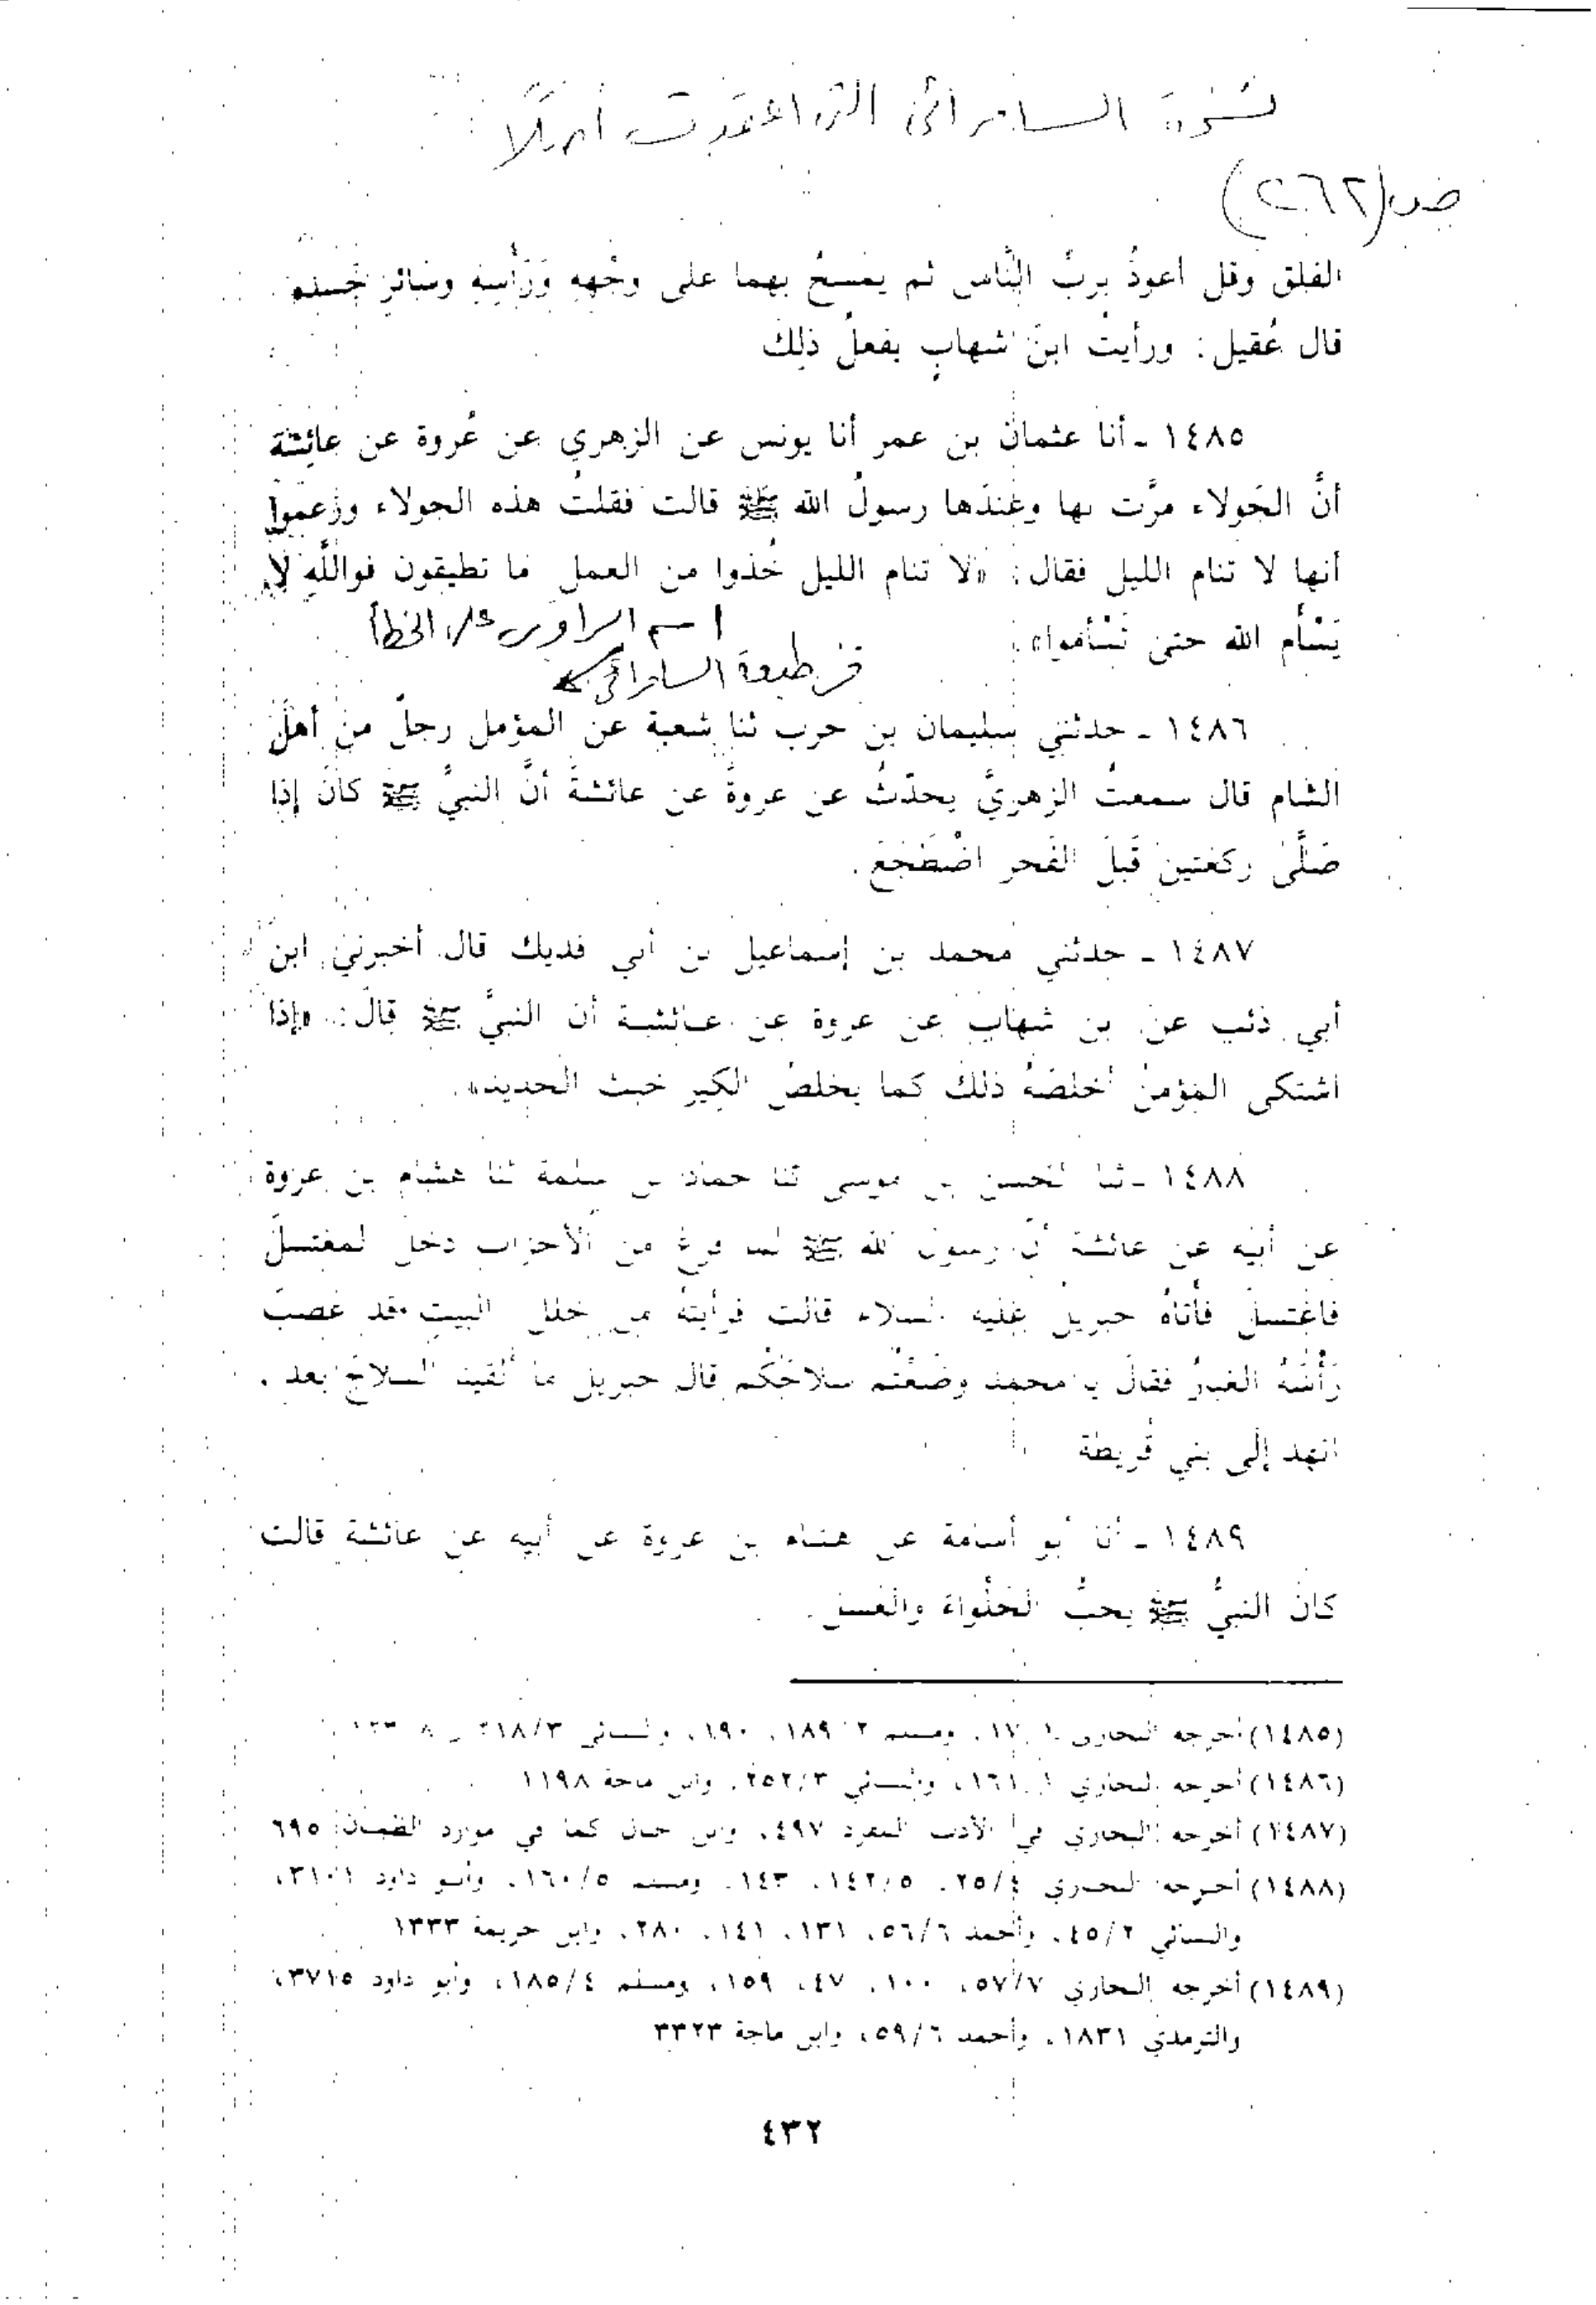 نسخة السامرائي التي اعتمدت أصلًا
ص (٢٦٢)
الفلق وقل أعوذُ بربِّ النَّاس ثم يمسحُ بهما على وجْههِ وَرَأْسِهِ وسَائرِ جَسَده
قال عُقيل: ورأيتُ ابنَ شهابٍ يفعلُ ذلِكَ
١٤٨٥ ـ أنا عثمان بن عمر أنا يونس عن الزهري عن عُروة عن عائِشَة
أنَّ الحَولاء مرَّت بها وعِندَها رسولُ الله ﷺ قالت فقلتُ هذه الحولاء وزعموا
أنها لا تنام الليل فقال: «لا تنام الليل خُذوا من العمل ما تطيقون فواللَّهِ لا
يَسْأم الله حتى تَسْأموا».
اسم الراوي على الخطأ
في طبعة السامرائي
١٤٨٦ ـ حدثني سليمان بن حرب ثنا شعبة عن المؤمل رجلٌ من أهل
الشام قال سمعتُ الزهريَّ يحدّثُ عن عروةَ عن عائشةَ أنَّ النبيَّ ﷺ كانَ إذا
صَلَّى ركعتين قَبلَ الفَجر اضْطَجَعَ.
١٤٨٧ ـ حدثني محمد بن إسماعيل بن أبي فديك قال أخبرني ابن
أبي ذئب عن بن شهاب عن عروة عن عائشة أن النبيَّ ﷺ قالَ: «إذا
اشتكى المؤمنُ أخلصَهُ ذلكَ كما يخلصُ الكِير خبث الحديد».
١٤٨٨ ـ ثنا الحسن بن موسى ثنا حماد بن سلمة ثنا هشام بن عروة
عن أبيه عن عائشة أن رسول الله ﷺ لما فرغ من الأحزاب دخلَ لمغتسلَ
فاغتسلَ فأتاهُ جبريلُ عليه السلام قالت فرأيتهُ من خلل البيت قد عَصَبَ
رَأْسَهُ الغبارُ فقالَ يا محمد وضَعْتُم سلاحَكُم قال جبريل ما ألقينا السلاحَ بعد.
انهد إلى بني قُريظة
١٤٨٩ ـ أنا أبو أسامة عن هشام بن عروة عن أبيه عن عائشة قالت
كانَ النبيُّ ﷺ يحبُّ الحَلْواءَ والعَسلَ.
(١٤٨٥) أخرجه البخاري ١٧، ومسلم ١٨٩/٢، ١٩٠، والنسائي ٢١٨/٣
(١٤٨٦) أخرجه البخاري ١٦١، والنسائي ٢٥٢/٣، وابن ماجة ١١٩٨
(١٤٨٧) أخرجه البخاري في الأدب المفرد ٤٩٧، وابن حبان كما في موارد الظمآن ٦٩٥
(١٤٨٨) أخرجه البخاري ٢٥/٤، ١٤٢/٥، ١٤٣، ومسلم ١٦٠/٥، وأبو داود ٣١٠١،
والنسائي ٤٥/٢، وأحمد ٥٦/٦، ١٣١، ١٤١، ٢٨٠، وابن خزيمة ١٣٣٣
(١٤٨٩) أخرجه البخاري ٥٧/٧، ١٠٠، ٤٧، ١٥٩، ومسلم ١٨٥/٤، وأبو داود ٣٧١٥،
والترمذي ١٨٣١، وأحمد ٥٩/٦، وابن ماجة ٣٣٢٣
٤٣٢